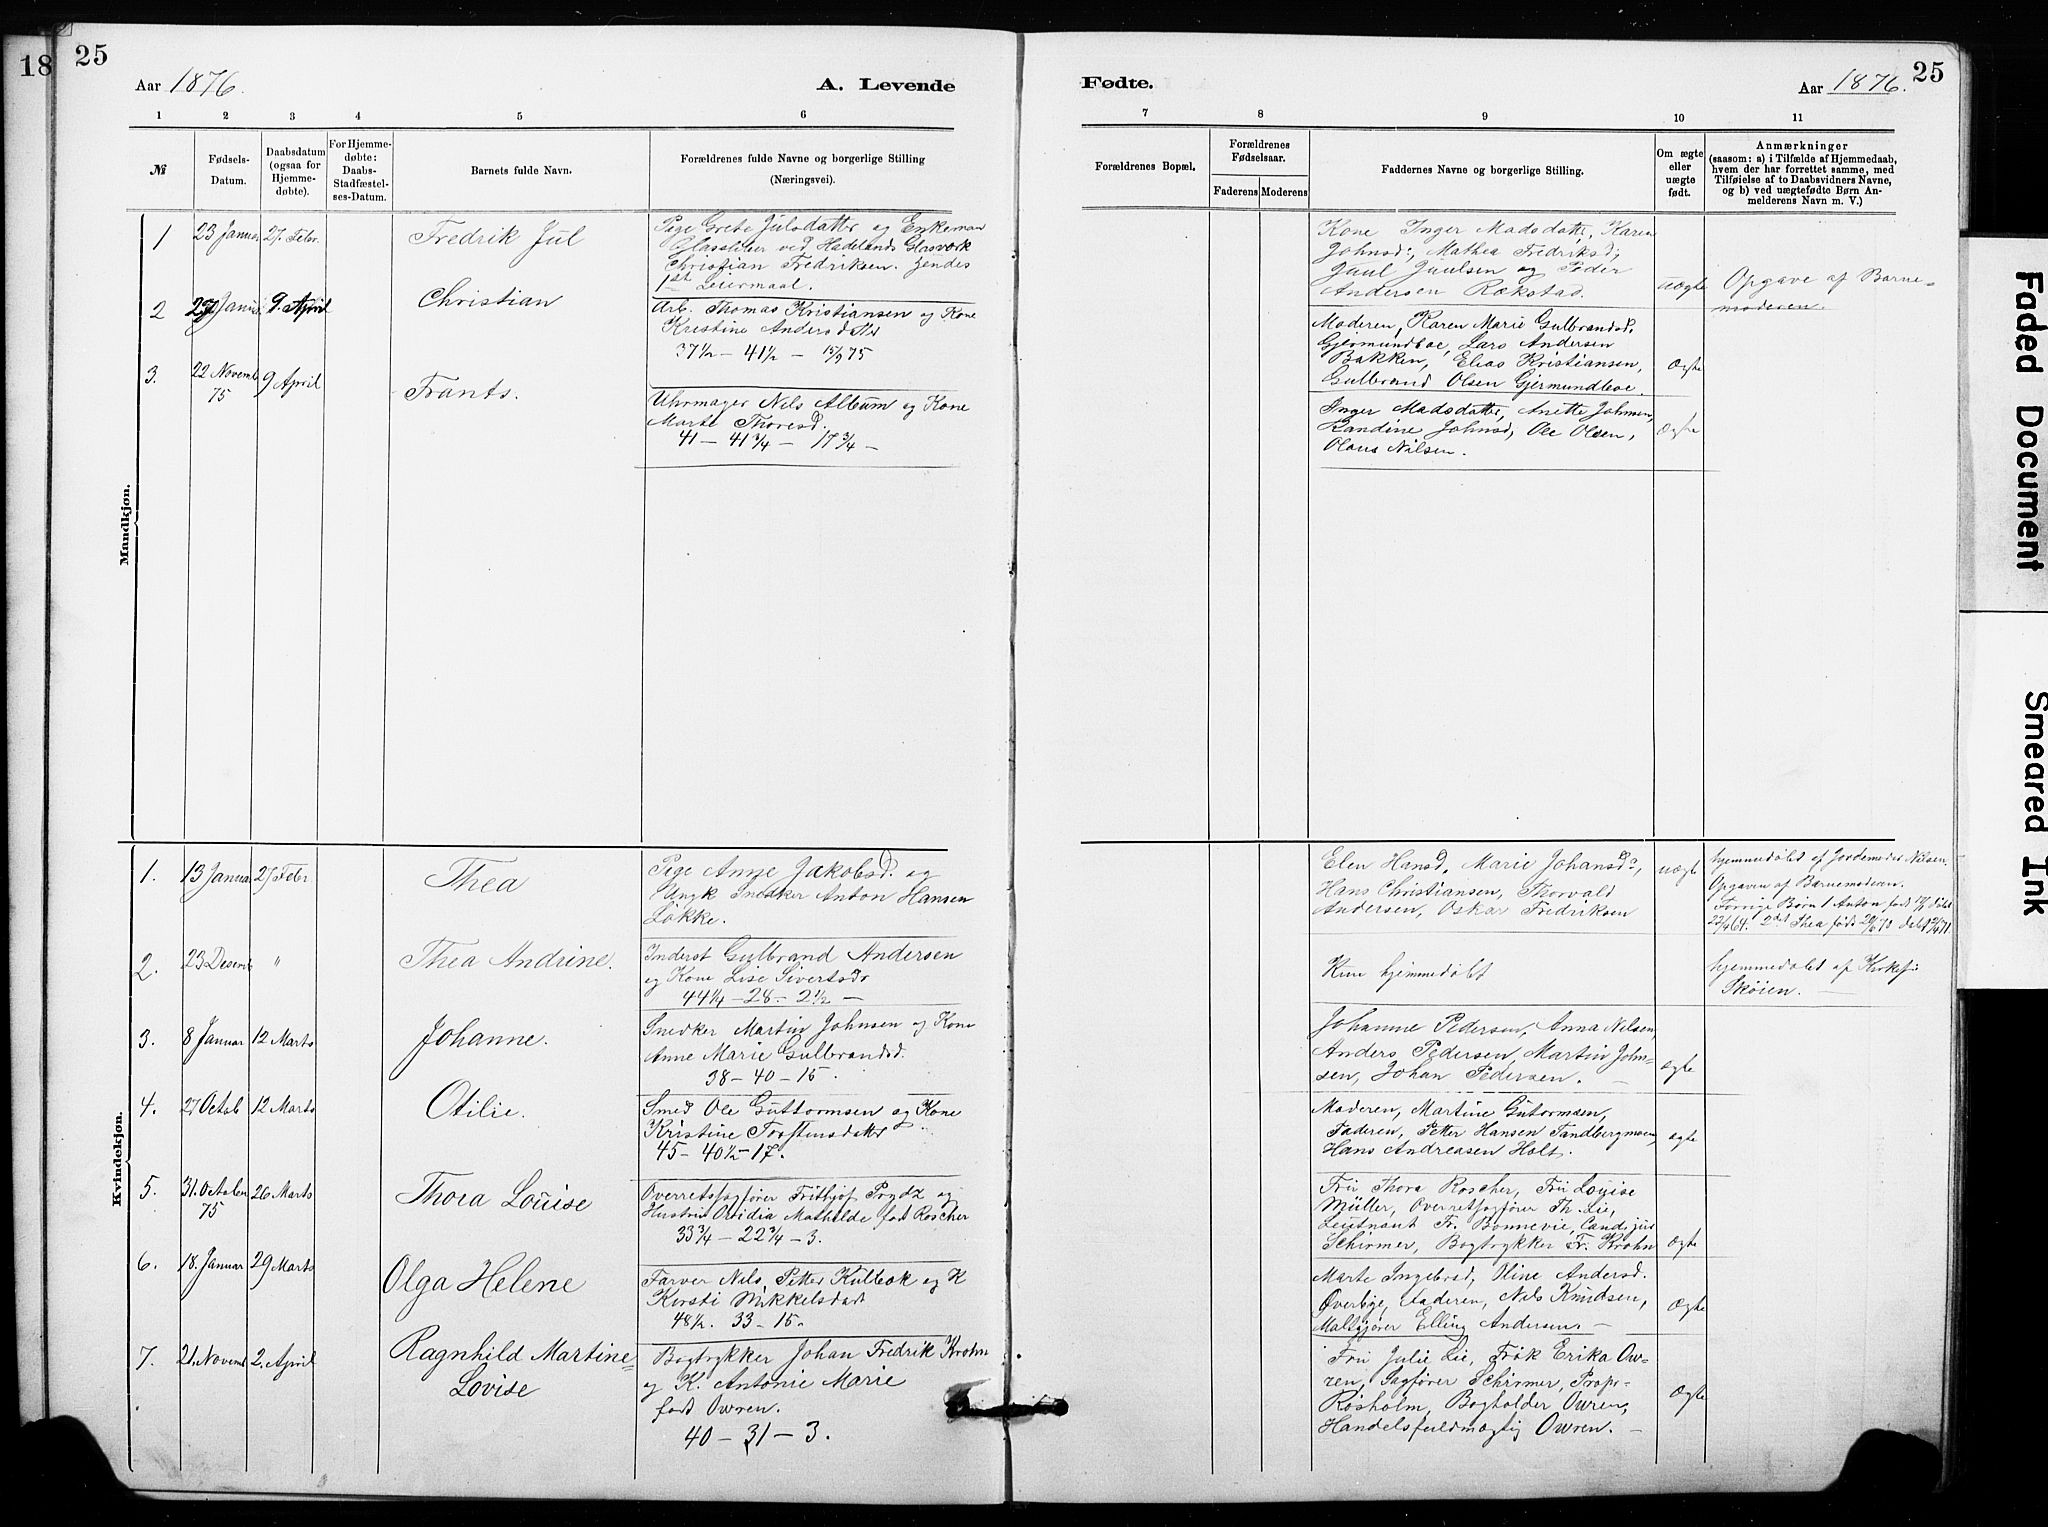 18
25
Aar 1876.
A. Levende
Fødte.
Aar 1876.
25
1 2 3 4 5 6 7 8 9 10 11
№
Fødsels-
Datum.
Daabsdatum
(ogsaa for
Hjemme-
døbte).
For Hjemme-
døbte:
Daabs-
Stadfæstel-
ses-Datum.
Barnets fulde Navn.
Forældrenes fulde Navne og borgerlige Stilling
(Næringsvei).
Forældrenes Bopæl.
Forældrenes
Fødselsaar.
Faderens Moderens
Faddernes Navne og borgerlige Stilling.
Om ægte
eller
uægte
født.
Anmærkninger
(saasom: a) i Tilfælde af Hjemmedaab,
hvem der har forrettet samme, med
Tilføielse af to Daabsvidners Navne,
og b) ved uægtefødte Børn An-
melderens Navn m. V.)
Mandkjøn.
1
23 Januar
27. Febr.
Fredrik Jul
Pige Grete Julsdatter og Enkeman
Glassliber ved Hadelands Glasværk
Christian Fredriksen. Hendes
1ste Leiermaal.
Kone Inger Madsdatt, Karen
Johnsd:, Mathea Fredriksd;
Juul Juulsen og Peder
Andersen Rækstad.
uægte
Opgave af Barne-
moderen.
2
Janua
9. April
Christian
Arb. Thomas Kristiansen og Kone
Kristine Andersdatter
37½ - 41½ - 15/9 75
Moderen, Karen Marie Gulbrandsd.
Gjermundboe, Lars Andersen
Bakken, Elias Kristiansen,
Gulbrand Olsen Gjermundboe.
Ægte
3.
22 Novemb
75
9 April
Frants.
Uhrmager Nils Album og Kone
Marte Thoresd.
41 - 41¾ - 17¾ -
Inger Madsdatter, Anette Johnsen,
Randine Johnsd, Ole Olsen,
Olaus Nilsen.
Ægte
Kvindekjøn.
1.
13 Janua
27 Febr
Thea
Pige Anne Jakobsd. og
Ungk Snedker Anton Hansen
Løkke.
Elen Hansd, Marie Johansd:,
Hans Christiansen, Thorvald
Andersen, Oskar Fredriksen
uægte
hjemmedøbt af Jordemoder Nilsen.
Opgaven af Barnemoderen.
Forrige Børn 1 Anton, født døbt
22/4 64. 2det Thea født døbt
2.
23 Desemb
"
Thea Andrine.
Inderst Gulbrand Andersen
og Kone Lise Sivertsdr
44¼ - 28 - 2½ -
Kun hjemmedøbt
hjemmedøbt af Kirkes:
Skøien.
3.
8 Januar
12 Marts
Johanne.
Snedker Martin Johnsen og Kone
Anne Marie Gulbrandsd.
38 - 40 - 15.
Johanne Pedersen, Anna Nilsen,
Anders Pedersen, Martin John-
sen, Johan Pedersen. -
ægte
4.
27 Octob
12 Marts
Otilie.
Smed Ole Guttormsen og Kone
Kristine Torstensdatter
45 - 40½ - 17.
Moderen, Martine Gutormsen,
Faderen, Petter Hansen Tandbergmoen,
Hans Andreasen Holt.
ægte
5.
31. October
75
26 Marts
Thora Louise
Overretssagfører Frithjof Prydz og
Hustru Ovidia Mathilde født Roscher
33¾ - 22¾ - 3.
Fru Thora Roscher, Fru Louise
Müller, Overretsagfører Th. Lie,
Leutnant Fr. Bonnevie, Cand. jur
Schirmer, Bogtrykker Fr. Krohn
Ægte
6.
18. Januar
29 Marts
Olga Helene
Farver Nils Petter Kulbek og K
Kirsti Mikkelsdat
48½. 33 - 15.
Marte Ingebrsd, Oline Andersd.
Øverbye, Faderen, Nils Knudsen,
Maltgjører Elling Andersen. -
Ægte
7.
21. Novemb
2. April
Ragnhild Martine
Lovise
Bogtrykker Johan Fredrik Krohn
og K. Antonie Marie
født Owren.
40 - 31 - 3.
Fru Julie Lie, Frøk Erika Ow-
ren, Sagfører Schirmer, Propr.
Røsholm, Bogholder Owren,
Handelsfuldmægtig Owren. -
Ægte
Faded Document
Smeared Ink